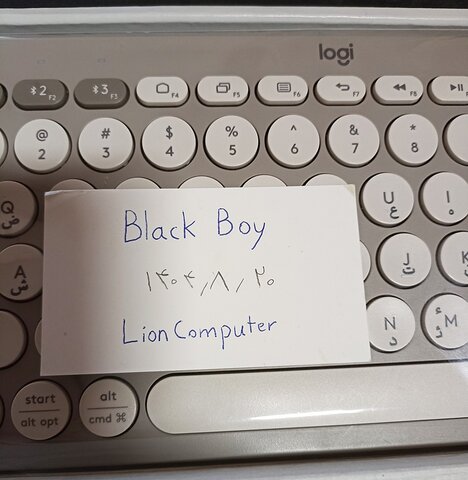 logi
2 F2 3 F3 F4 F5 F6 F7 F8 F
@ 2 # 3 $ 4 % 5 ^ 6 & 7 * 8
Q ض U ع I ه
Black Boy
۱۴۰۴/۸/۲۰
Lion Computer
A ش J ت K
N د M ئ
start alt opt alt cmd ⌘